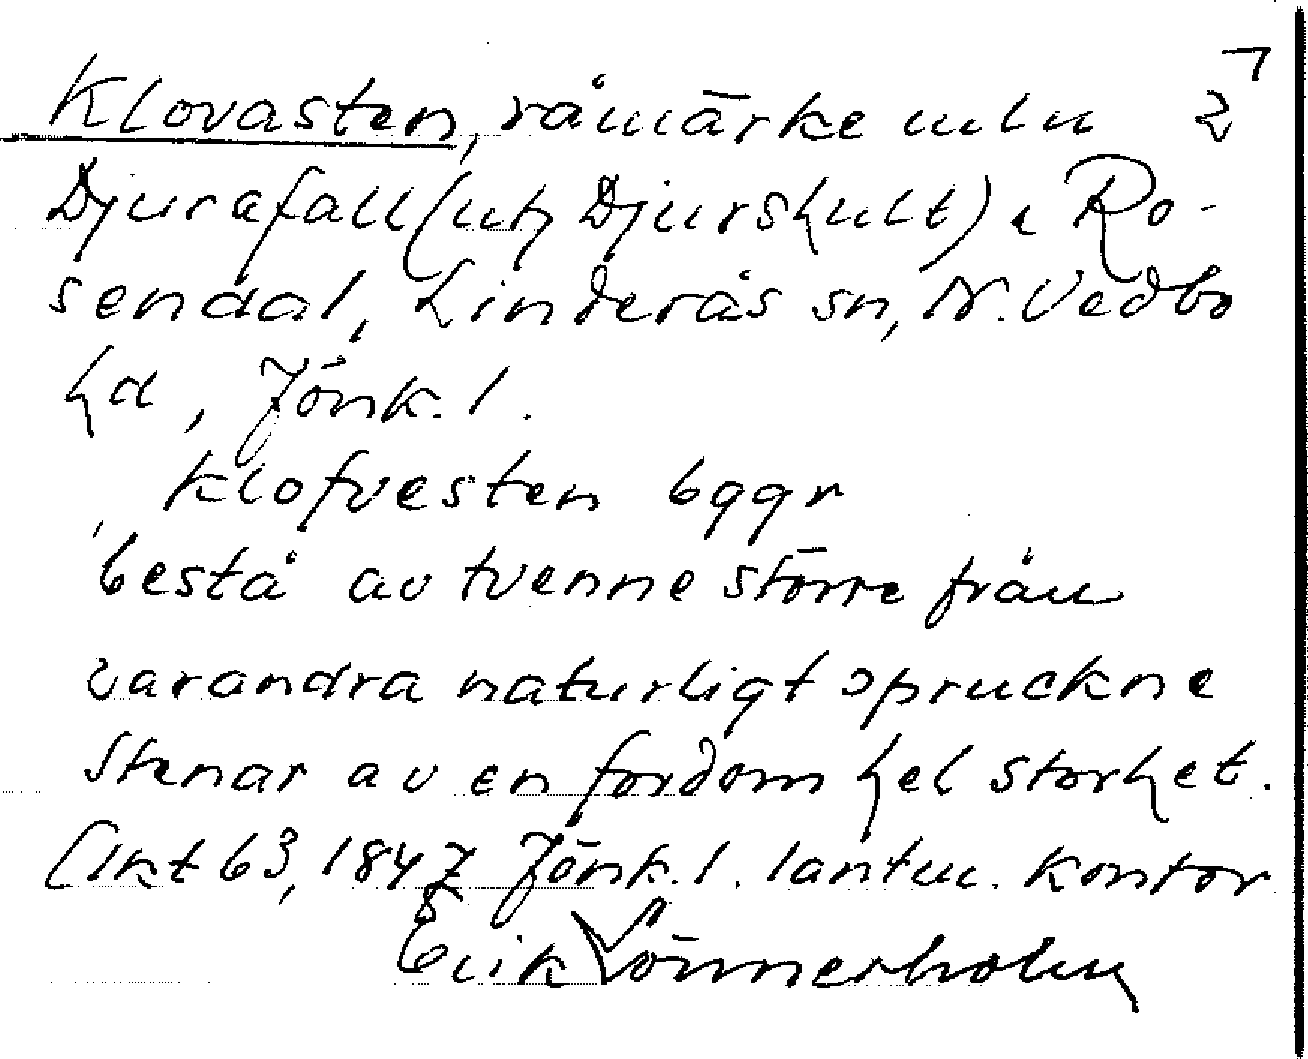 Klovasten, råmärke mln 2
Djurafall (utj Djurshult) o Ro-
sendal, Linderås sn, N. Vedbo
hd, Jönk. l.
Klofvesten
bestå av tvenne större från
varandra naturligt spruckne
stenar av en fordom hel storhet.
(Akt 63, 1847 Jönk. l. lantm. kontor
Erik